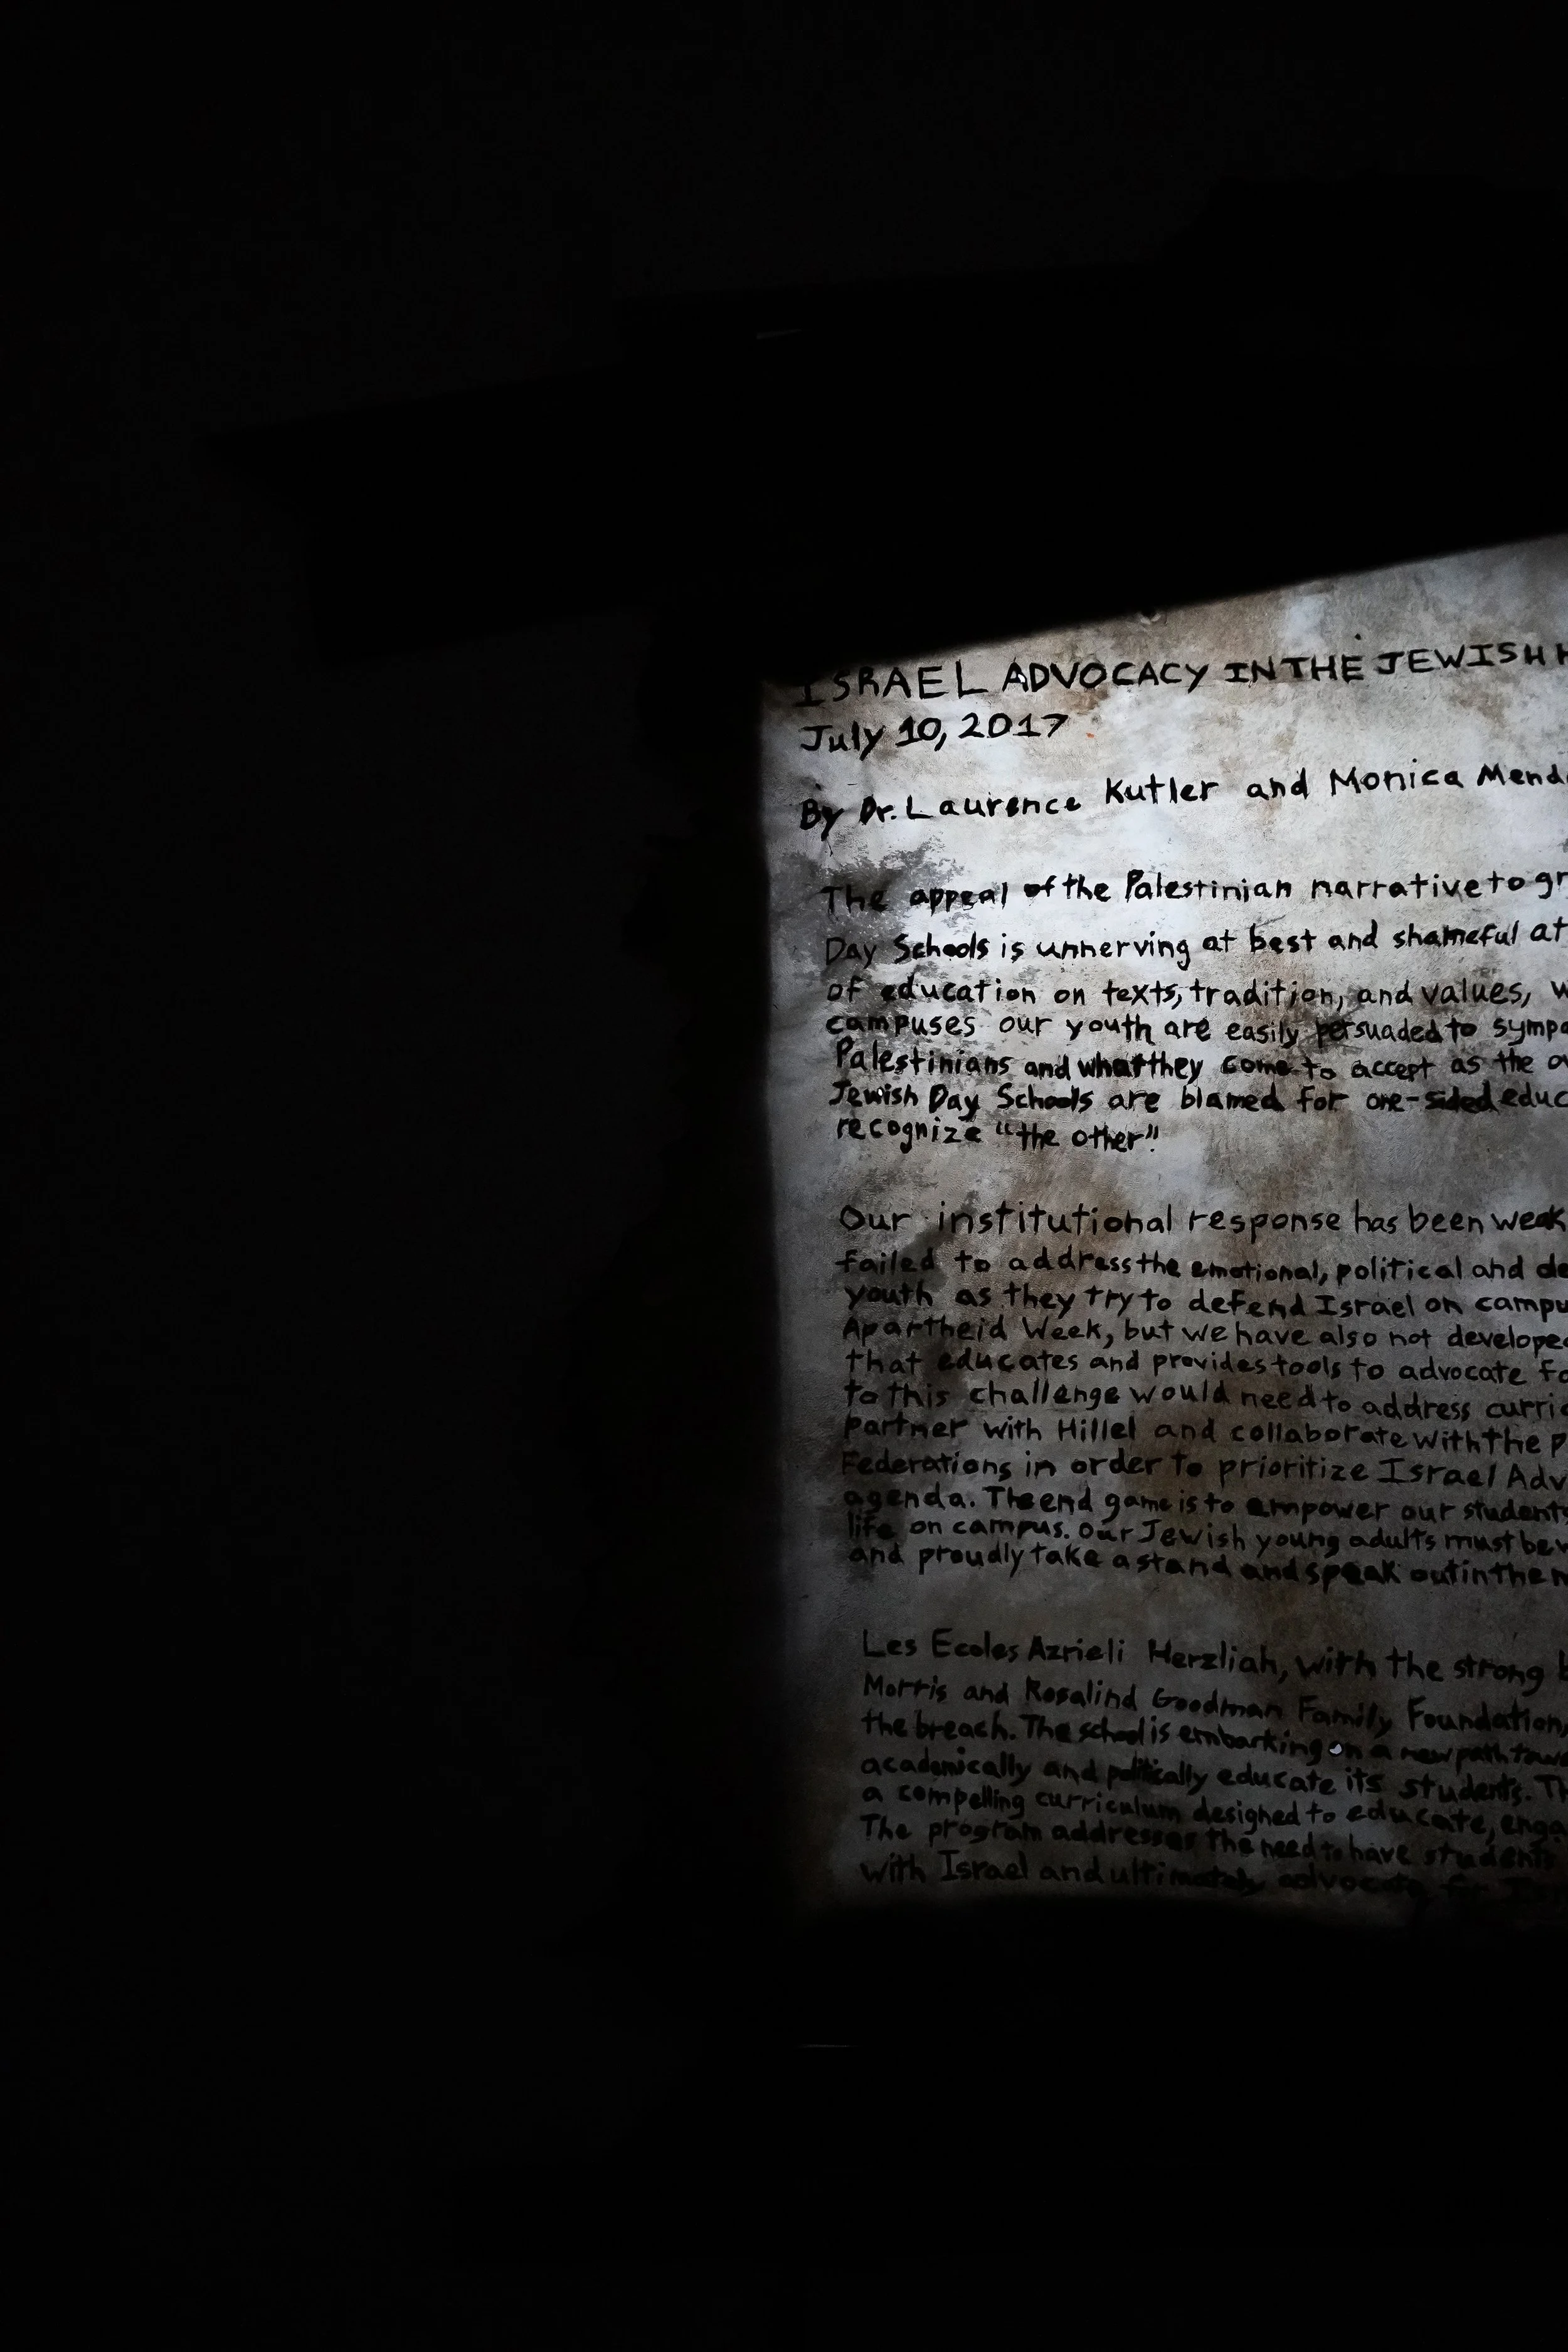 ISRAEL ADVOCACY IN THE JEWISH H
July 10, 2017
By Dr. Laurence Kutler and Monica Mend
The appeal of the Palestinian narrative to gr
Day Schools is unnerving at best and shameful at
of education on texts, tradition, and values, w
campuses our youth are easily persuaded to sympa
Palestinians and what they come to accept as the o
Jewish Day Schools are blamed for one-sided educ
recognize "the other".
Our institutional response has been weak
failed to address the emotional, political and de
youth as they try to defend Israel on campu
Apartheid Week, but we have also not develope
that educates and provides tools to advocate fo
to this challenge would need to address curric
partner with Hillel and collaborate with the p
Federations in order to prioritize Israel Adv
agenda. The end game is to empower our students
life on campus. Our Jewish young adults must be v
and proudly take a stand and speak out in the m
Les Ecoles Azrieli Herzliah, with the strong b
Morris and Rosalind Goodman Family Foundation,
the breach. The school is embarking on a new path towa
academically and politically educate its students. Th
a compelling curriculum designed to educate, enga
The program addresses the need to have students
with Israel and ultimately advocate for